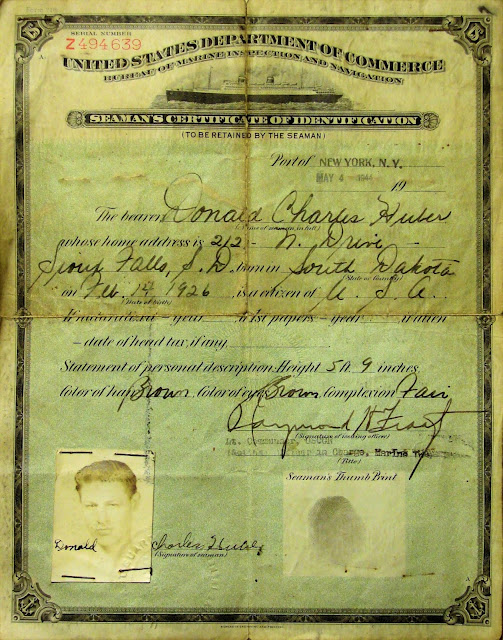 SERIAL NUMBER
Z494639
UNITED STATES DEPARTMENT OF COMMERCE
BUREAU OF MARINE INSPECTION AND NAVIGATION
SEAMAN'S CERTIFICATE OF IDENTIFICATION
(TO BE RETAINED BY THE SEAMAN)
Port of NEW YORK, N.Y.
MAY 4 1944 19
The bearer, Donald Charles Huber
(Name of seaman, in full)
whose home address is 212 - N. Drive -
Sioux Falls, S.D., born in South Dakota
(State or Country)
on Feb. 14 1926, is a citizen of U.S.A.
(Date of birth)
If naturalized - year If 1st papers - year If alien
- date of head tax, if any,
Statement of personal description: Height 5 ft. 9 inches.
Color of hair Brown Color of eyes Brown Complexion Fair
Raymond
(Signature of issuing officer)
Lt. Commander, USCGR
in Charge, Marine
(Title)
Seaman's Thumb Print
Donald Charles Huber
(Signature of seaman)